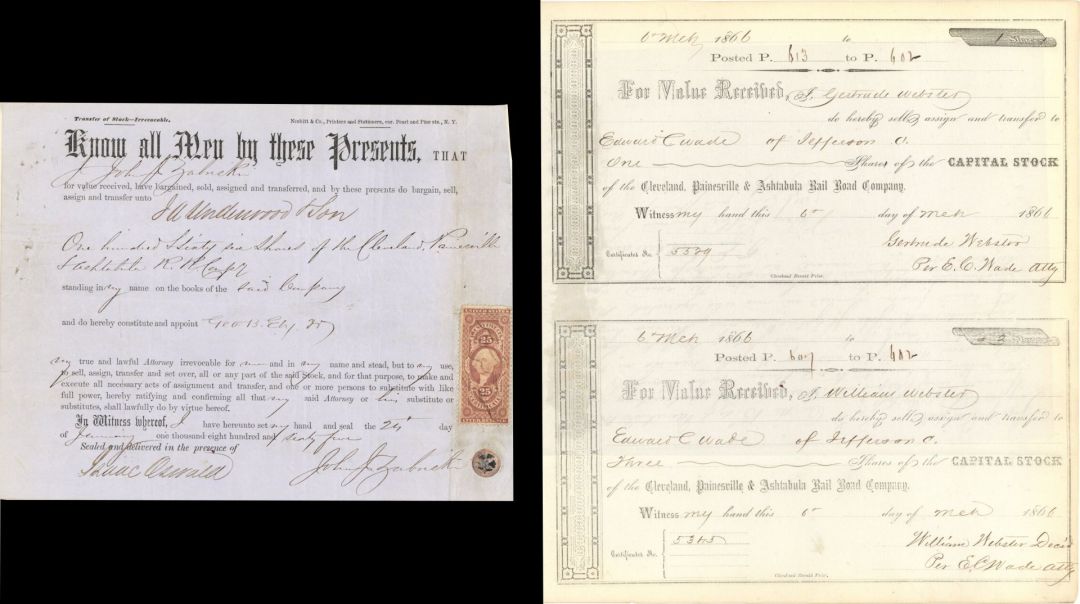 Transfer of Stock—Irrevocable. Nesbitt & Co., Printers and Stationers, cor. Pearl and Pine sts., N. Y.
Know all Men by these Presents, THAT
I John J.
for value received, have bargained, sold, assigned and transferred, and by these presents do bargain, sell,
assign and transfer unto
J A Underwood & Son
One hundred & sixty six Shares of the Cleveland, Painesville
& Ashtabula R. R. Compy
standing in my name on the books of the said Company
and do hereby constitute and appoint Geo B. Ely
my true and lawful Attorney irrevocable for me and in my name and stead, but to my use,
to sell, assign, transfer and set over, all or any part of the said Stock, and for that purpose, to make and
execute all necessary acts of assignment and transfer, and one or more persons to substitute with like
full power, hereby ratifying and confirming all that my said Attorney or his substitute or
substitutes, shall lawfully do by virtue hereof.
In Witness whereof, I have hereunto set my hand and seal the 24 day
of January one thousand eight hundred and sixty five
Sealed and delivered in the presence of
Isaac John J.
25
25
6 Mch 1866 to 1 Share
Posted P. 613 to P. 602
For Value Received, I, Gertrude Webster
do hereby sell, assign and transfer to
Edward C Wade of Jefferson O.
One Shares of the CAPITAL STOCK
of the Cleveland, Painesville & Ashtabula Rail Road Company.
Witness my hand this 6th day of Mch 1866
Gertrude Webster
Certificates No. 5379
Per E. C. Wade Atty
Cleveland Herald Print.
6 Mch 1866 to 3
Posted P. 607 to P. 602
For Value Received, I, William Webster
do hereby sell, assign and transfer to
Edward C Wade of Jefferson O.
Three Shares of the CAPITAL STOCK
of the Cleveland, Painesville & Ashtabula Rail Road Company.
Witness my hand this 6th day of Mch 1866
William Webster Decd
Certificates No. 5385
Per E. C Wade Atty
Cleveland Herald Print.